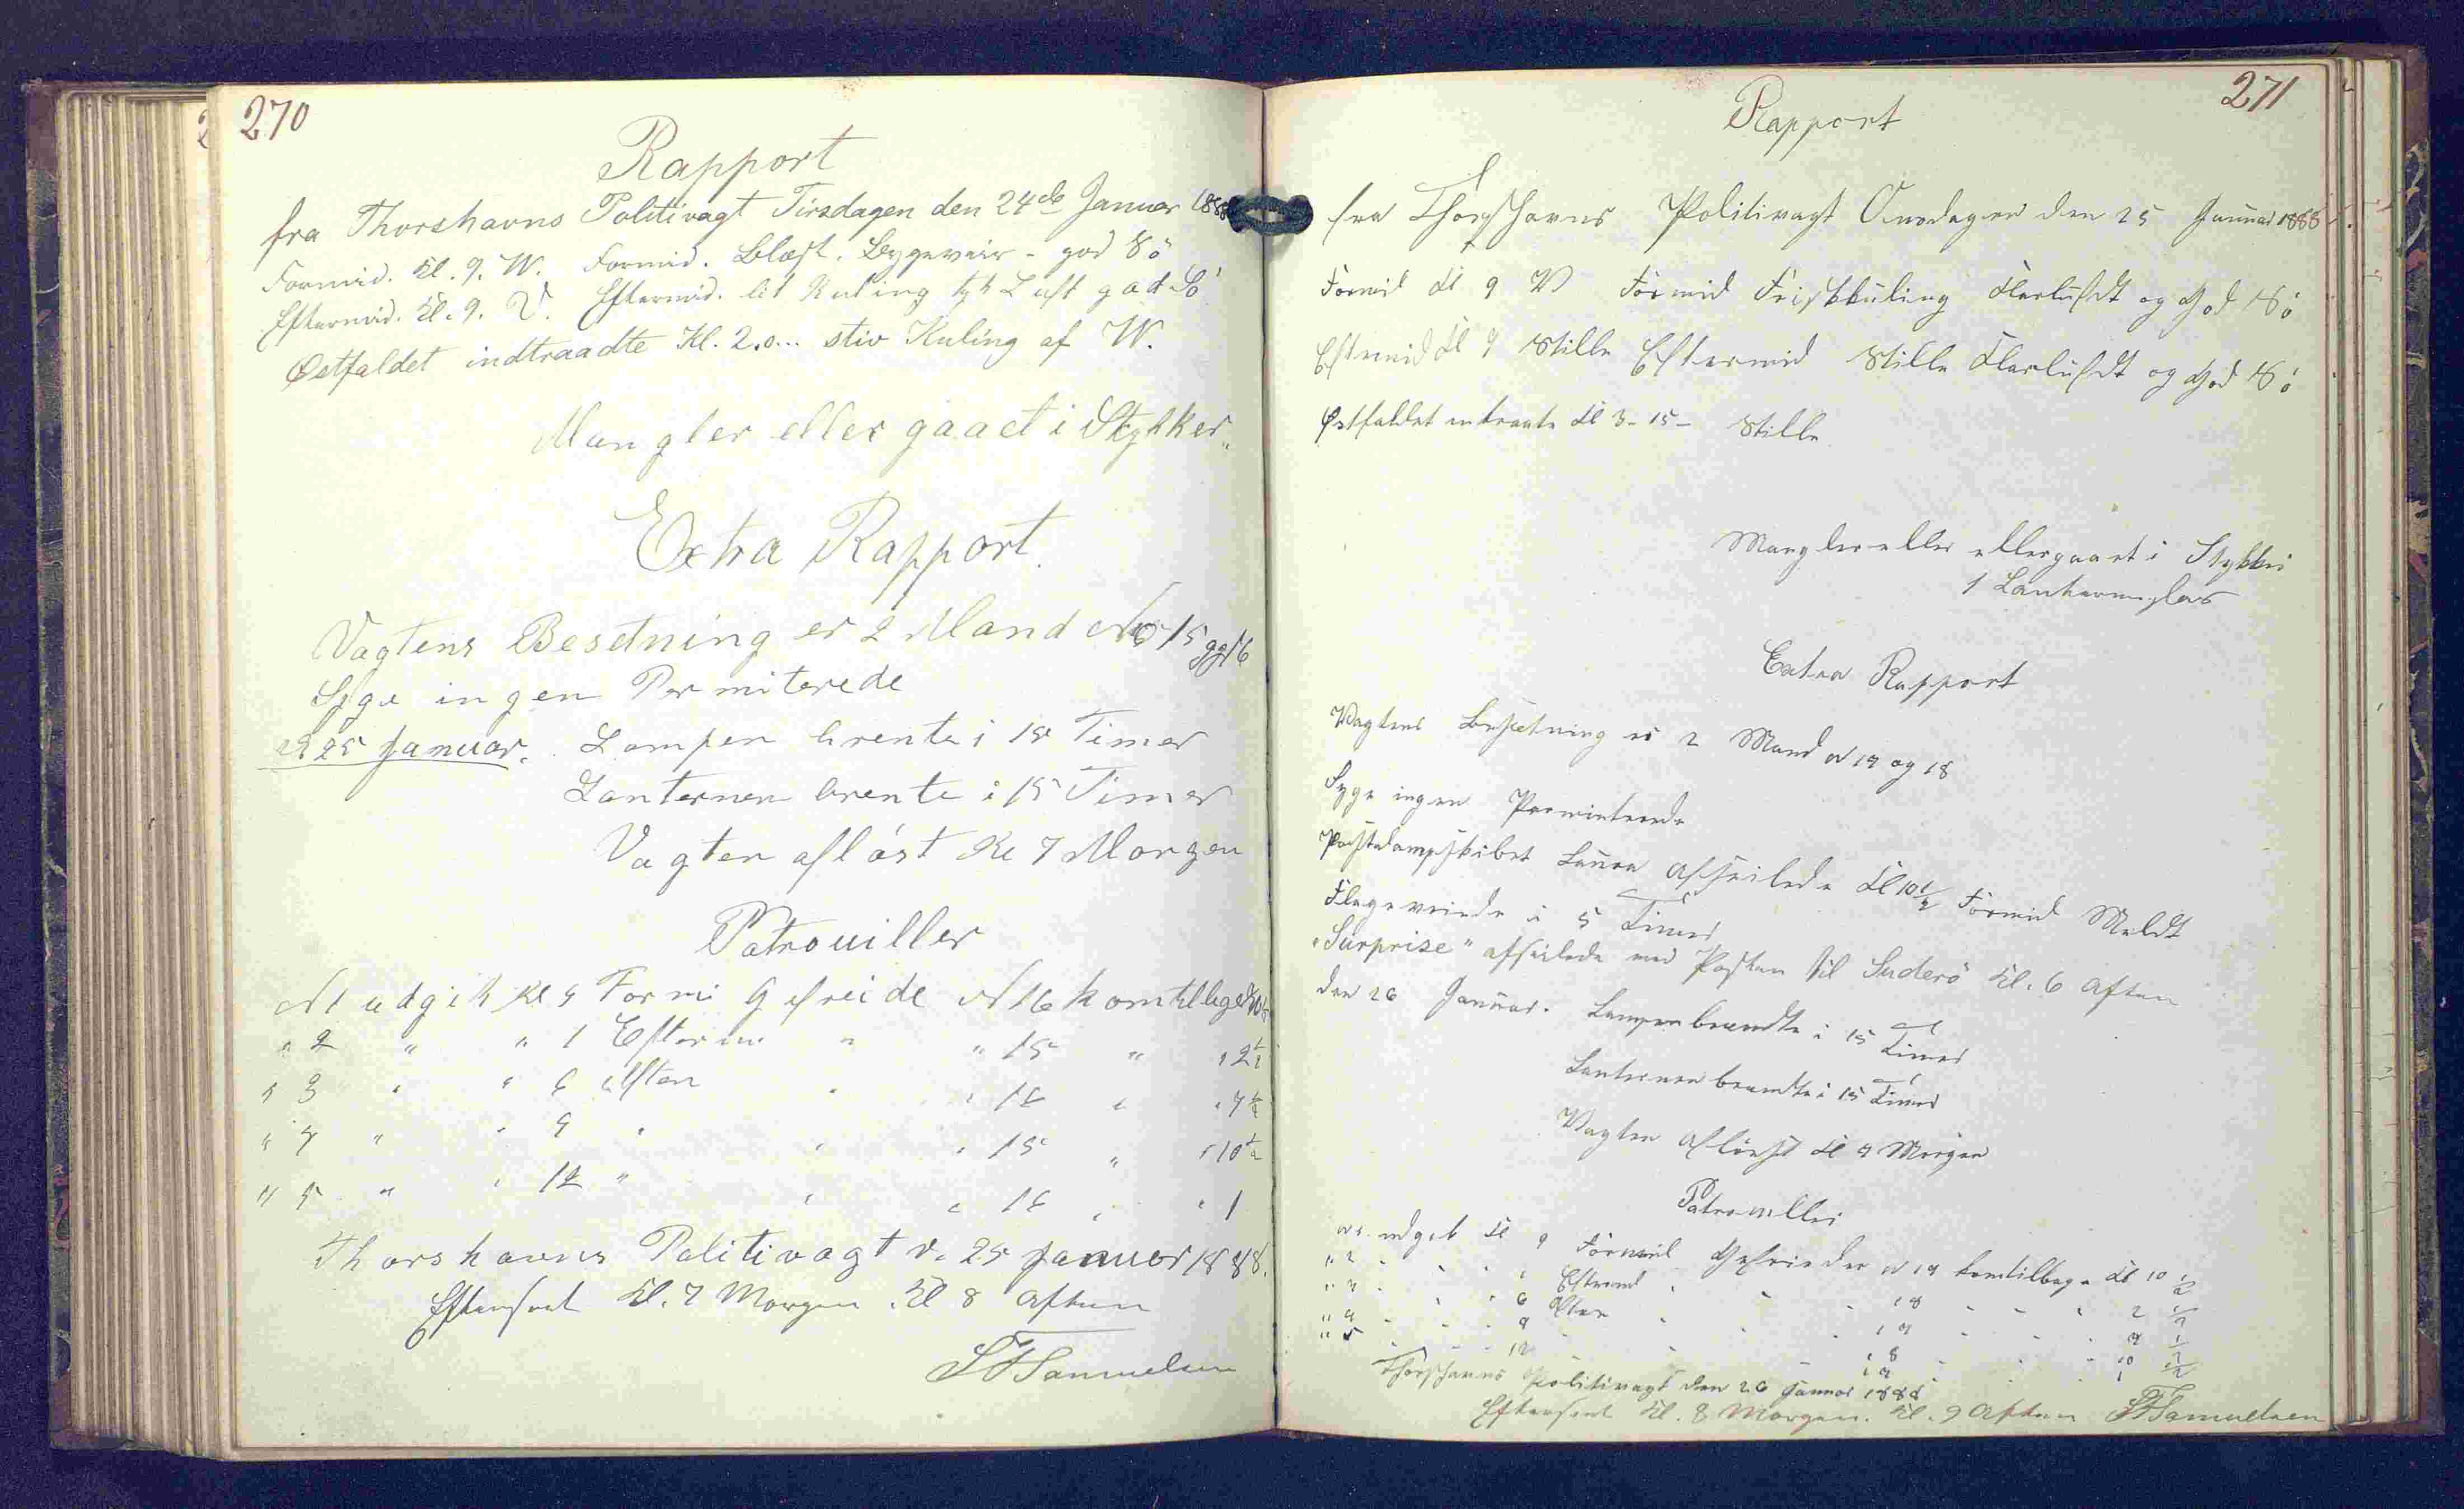 270
Rapport
fra Thorshavns Politivagt Tirsdagen den 24de Januar 1888
Formid. Kl. 9. W. Formid. Blæst. Bygeveir - god Sö
Eftermid. Kl. 9. V. Eftermid. let Kuling tyk Luft god Sö
Østfaldet indtraadte Kl. 2.0... stiv Kuling af W.
Mangler eller gaaet i Stykker „
Extra Rapport.
Vagtens Besetning er 2 Mand No 15 og 16
Syge ingen Permiterede
D 25 Januar. Lampen brente i 15 Timer
Lanternen brente i 15 Timer
Vagten aflöst Kl 7 Morgen
Patrouiller
N 1 udgik Kl 9 Formi Gefreide N 16 kom tilbage Kl 10½
" 2 " " 1 Efterm " " 15 " " 2½
" 3 " " 6 Aften " " 16 " " 7½
" 4 " " 9 " " " 15 " " 10½
" 5 " " 12 " " " 16 " " 1
Thorshavns Politivagt d. 25 Januar 1888.
Efterseet Kl. 7 Morgen. Kl 8 Aften
Samuelsen
271
Rapport
fra Thorshavns Politivagt Onsdagen den 25 Januar 1888
Formid Kl 9 V Formid Frisk kuling Klarlufdt og God Sö
Eftermid Kl 9 Stille Eftermid Stille Klarlufdt og God Sö
Østfaldet intraate Kl 3-15- Stille
Mangler eller ellergaaet i Stykker
1 Lanterneglas
Extra Rapport
Vagtens Besetning er 2 Mand N 17 og 18
Syge ingen Permiterede
Postdampskibet Laura afseilede Kl 10½ Formid Meldt
Flage veiede i 5 Timer
"Surprise" afseilede med Posten til Suderö Kl. 6 Aften
den 26 Januar. Lampen brendte i 15 Timer
Lanternen brendte i 15 Timer
Vagten aflöst Kl 7 Morgen
Patrouiller
N 1 udgik Kl 9 Formid Gefreider N 17 kom tilbage Kl 10 ½
" 2 " " 1 Efterm " " 18 " " 2 ½
" 3 " " 6 Aften " " 17 " " 7 ½
" 4 " " 9 " " 18 " " 10 ½
" 5 " " 12 " " 17 " " 1
Thorshavns Politivagt den 26 Januar 1888
Efterseet Kl. 8 Morgen. Kl. 9 Aften Samuelsen